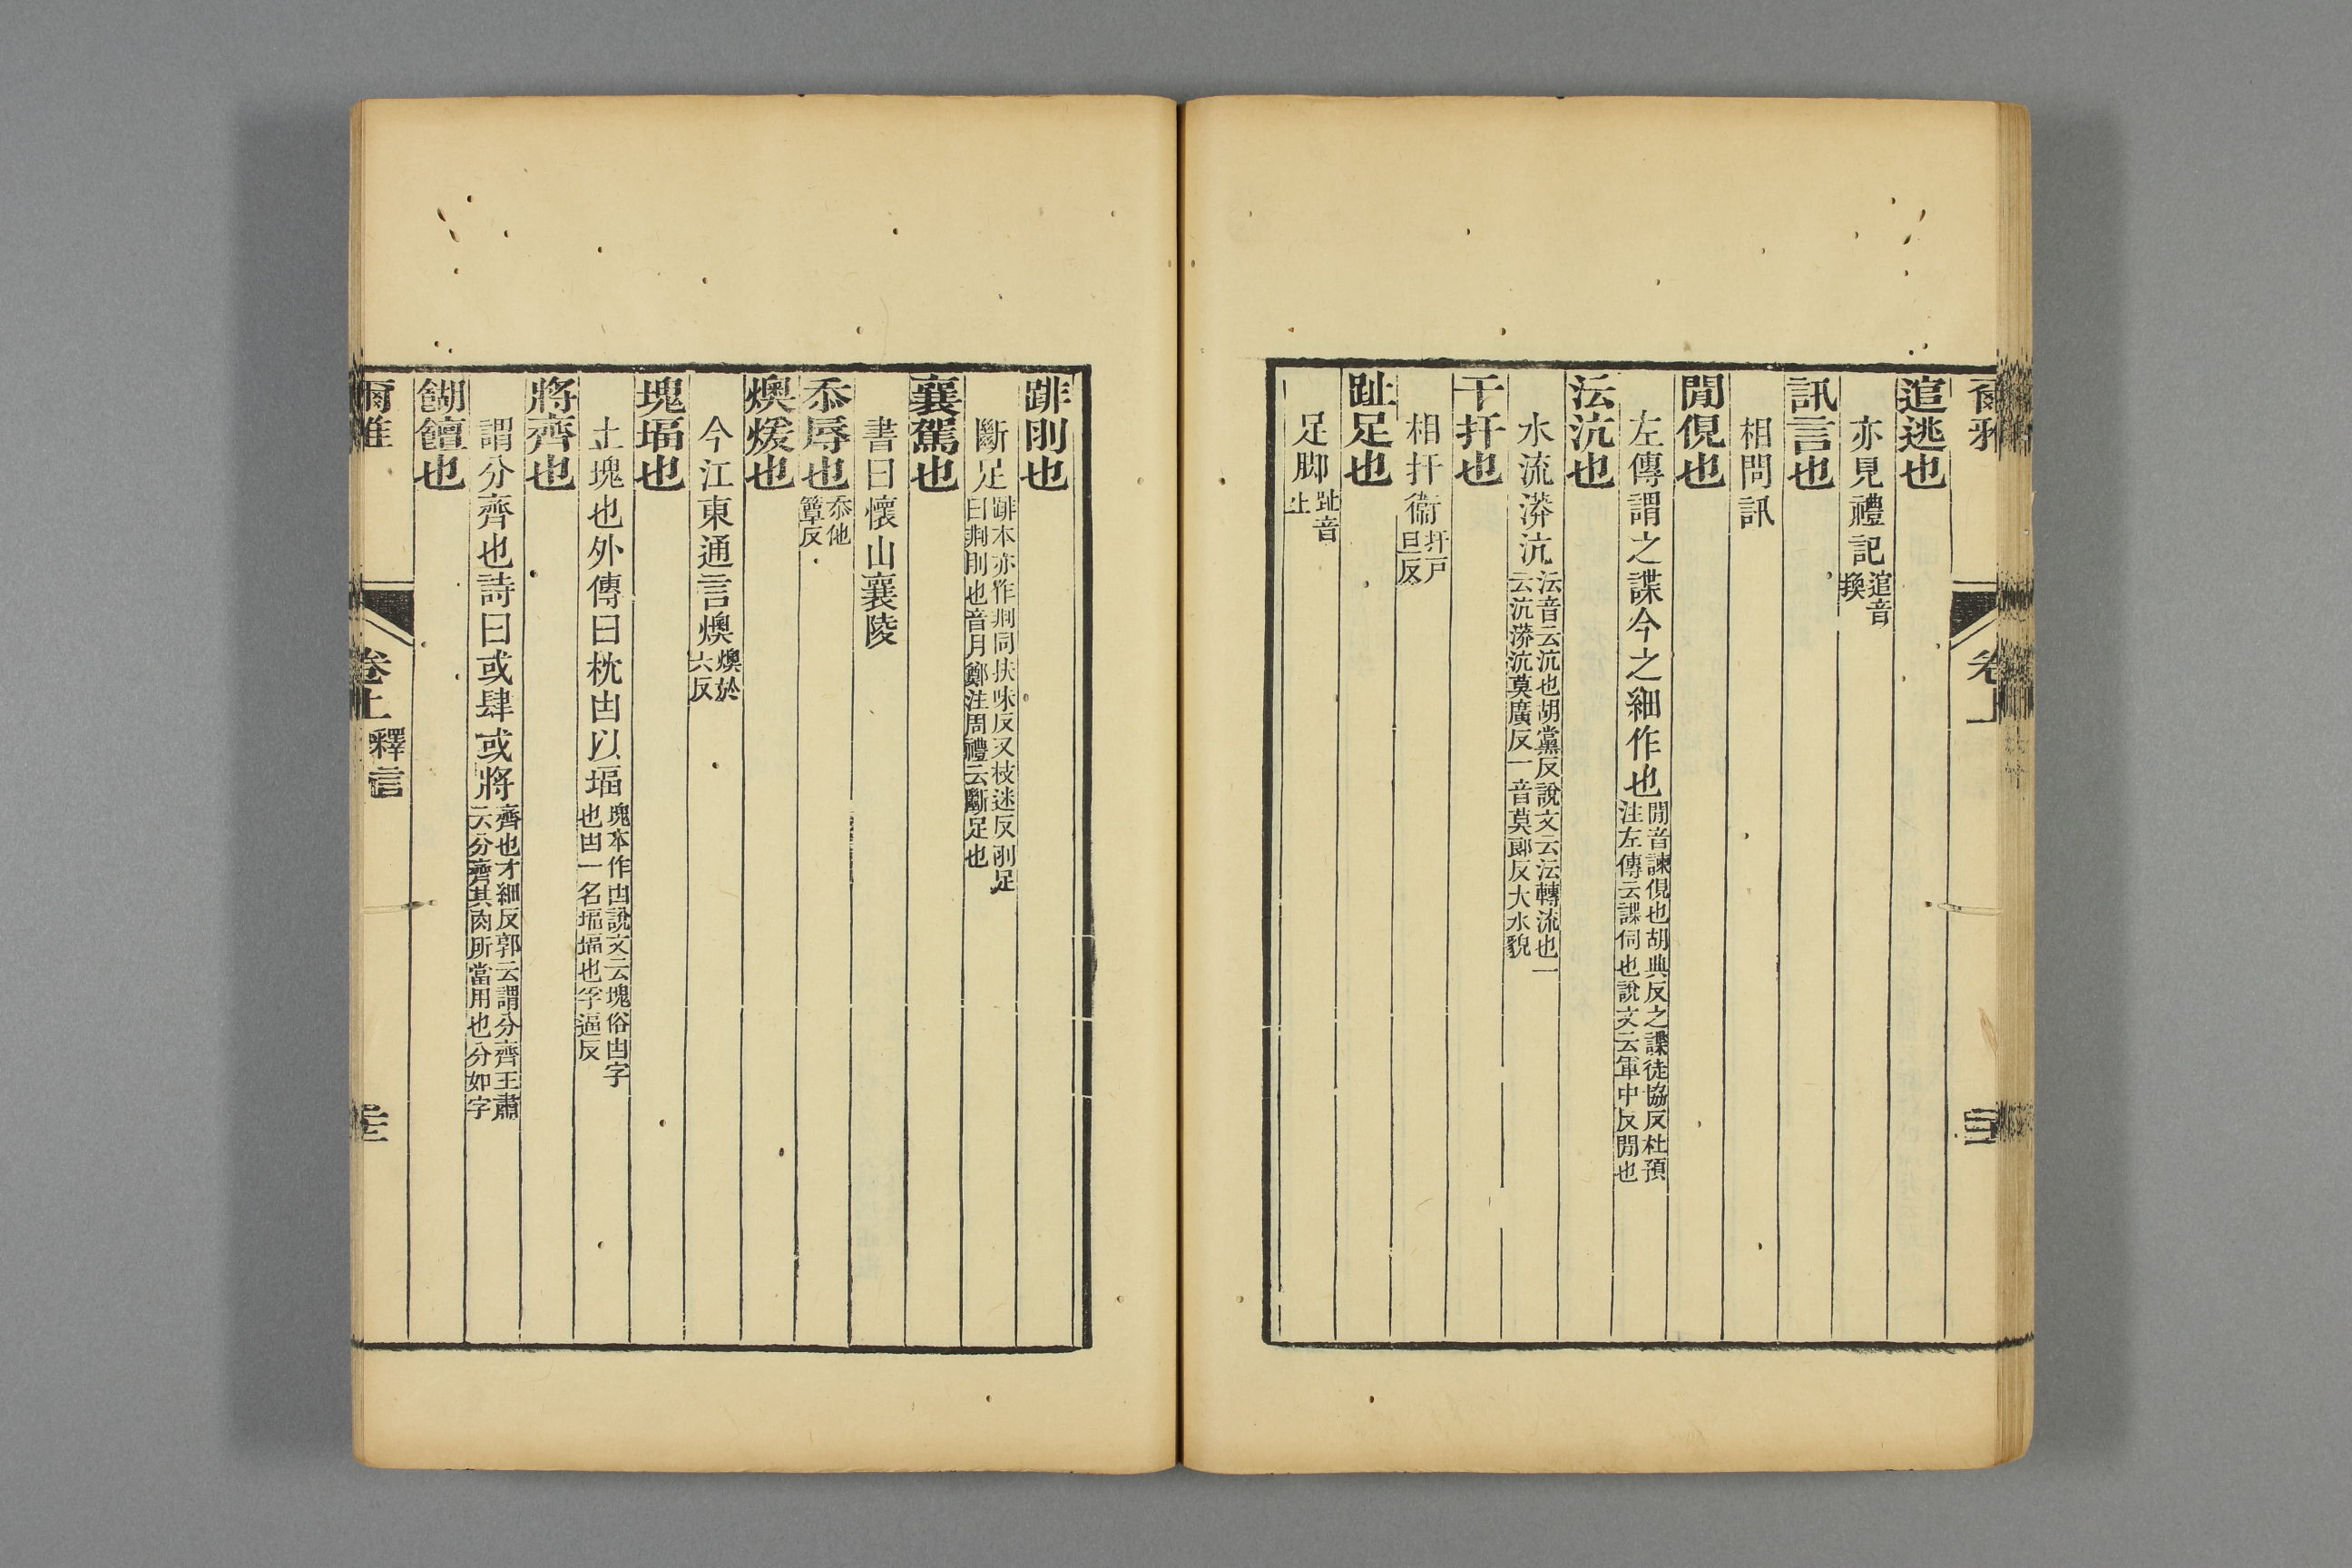 爾雅 卷上
逭逃也
亦見禮記逭音換
訊言也
相問訊
閒俔也
左傳謂之諜今之細作也閒音諫俔也胡典反之諜徒協反杜預注左傳云諜伺也說文云軍中反閒也
沄沆也
水流漭沆沄音云沆也胡黨反說文云沄轉流也一云沆漭沆莫廣反一音莫郎反大水貌
干扞也
相扞衞扞戸旦反
趾足也
足脚趾音止
跳刖也
斷足跳本亦作剕同扶味反又枝迷反刖足曰剕刖也音月鄭注周禮云斷足也
襄駕也
書曰懷山襄陵
忝辱也忝他簟反
燠煖也
今江東通言燠燠於六反
塊堛也
土塊也外傳曰枕凷以堛塊本作凷說文云塊俗凷字也凷一名堛堛也孚逼反
將齊也
謂分齊也詩曰或肆或將齊也才細反郭云謂分齊王肅云分齊其肉所當用也分如字
餬饘也
爾雅 卷上 釋言